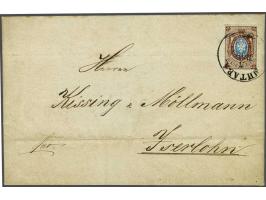 Herren
Kissing & Möllmann
Iserlohn